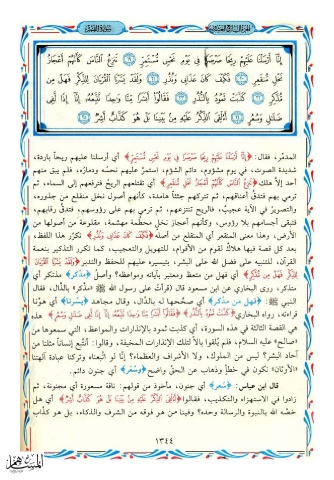 إِنَّا أَرْسَلْنَا عَلَيْهِمْ رِيحًا صَرْصَرًا فِي يَوْمِ نَحْسٍ مُّسْتَمِرٍّ ١٩ تَنزِعُ النَّاسَ كَأَنَّهُمْ أَعْجَازُ
نَخْلٍ مُّنقَعِرٍ ٢٠ فَكَيْفَ كَانَ عَذَابِي وَنُذُرِ ٢١ وَلَقَدْ يَسَّرْنَا الْقُرْآنَ لِلذِّكْرِ فَهَلْ مِن
مُّدَّكِرٍ ٢٢ كَذَّبَتْ ثَمُودُ بِالنُّذُرِ ٢٣ فَقَالُوا أَبَشَرًا مِّنَّا وَاحِدًا نَّتَّبِعُهُ إِنَّا إِذًا لَّفِي
ضَلَالٍ وَسُعُرٍ ٢٤ أَأُلْقِيَ الذِّكْرُ عَلَيْهِ مِن بَيْنِنَا بَلْ هُوَ كَذَّابٌ أَشِرٌ ٢٥
المدمّر، فقال: ﴿إِنَّا أَرْسَلْنَا عَلَيْهِمْ رِيحًا صَرْصَرًا فِي يَوْمِ نَحْسٍ مُّسْتَمِرٍّ﴾ أي أرسلنا عليهم ريحاً باردة،
شديدة الصوت، في يوم مشؤوم، دائم الشؤم، استمرّ عليهم نحسه ودماره، فلم يبق منهم
أحد إلاّ هلك ﴿تَنزِعُ النَّاسَ كَأَنَّهُمْ أَعْجَازُ نَخْلٍ مُّنقَعِرٍ﴾ أي تقتلعهم الريح فترفعهم إلى السماء، ثم
ترمي بهم فتدقّ أعناقهم، ثم تتركهم جثثاً هامدة، كأنهم أصول نخل منقلع من جذوره،
والتصوير في الآية عجيب، فالريح تنتزعهم، ثم ترمي بهم على رؤوسهم، فتدقّ رقابهم،
فتبقى أجسامهم بلا رؤوس، وكأنهم أعجاز نخل محطّمة مهشّمة، مقلوعة من أصولها من
الأرض، وهذا معنى المنقعر أي المنقلع من أصله ﴿فَكَيْفَ كَانَ عَذَابِي وَنُذُرِ﴾ تكرّر هذا اللفظ،
بعد كل قصة فيها هلاك لقوم من الأقوام، للتهويل والتعجيب، كما تكرر التذكير بنعمة
القرآن، للتنبيه على فضل الله على البشر، بتيسيره عليهم للحفظ والتدبر ﴿وَلَقَدْ يَسَّرْنَا الْقُرْآنَ
لِلذِّكْرِ فَهَلْ مِن مُّدَّكِرٍ﴾ أي فهل من متعظ ومعتبر بآياته ومواعظه؟ وأصل ﴿مدكر﴾ مذتكر أي
متذكر، روى البخاري عن ابن مسعود قال (قرأت على رسول الله ﷺ «مذكر» بالذال، فقال
النبي ﷺ: ﴿فهل من مدكر﴾ أي صحّحها له بالدال، وقال مجاهد ﴿يسّرنا﴾ أي هوّنا
قراءته، رواه البخاري ﴿كَذَّبَتْ ثَمُودُ بِالنُّذُرِ فَقَالُوا أَبَشَرًا مِّنَّا وَاحِدًا نَّتَّبِعُهُ إِنَّا إِذًا لَّفِي ضَلَالٍ وَسُعُرٍ﴾ هذه
هي القصة الثالثة في هذه السورة، أي كذبت ثمود بالإنذارات والمواعظ، التي سمعوها من
«صالح» عليه السلام، فلم يُلقوا بالاً لتلك الإنذارات المخيفة، وقالوا: أنتّبع إنساناً مثلنا من
آحاد البشر؟ ليس من الملوك، ولا الأشراف والعظماء؟ إنّا لو اتّبعناه وتركنا عبادة آلهتنا
«الأوثان» نكون في خطأ وذهاب عن الحقّ واضح ﴿وسُعُر﴾ أي جنون دائم.
قال ابن عباس: ﴿سُعُر﴾ أي جنون، مأخوذ من قولهم: ناقة مسعورة أي مجنونة، ثم
زادوا في الاستهزاء والتكذيب، فقالوا ﴿أَأُلْقِيَ الذِّكْرُ عَلَيْهِ مِن بَيْنِنَا بَلْ هُوَ كَذَّابٌ أَشِرٌ﴾ أي هل
خصّه الله بالنبوة والرسالة وحده؟ وفينا من هو فوقه من الشرف والذكاء، بل هو كذّاب
١٣٤٤